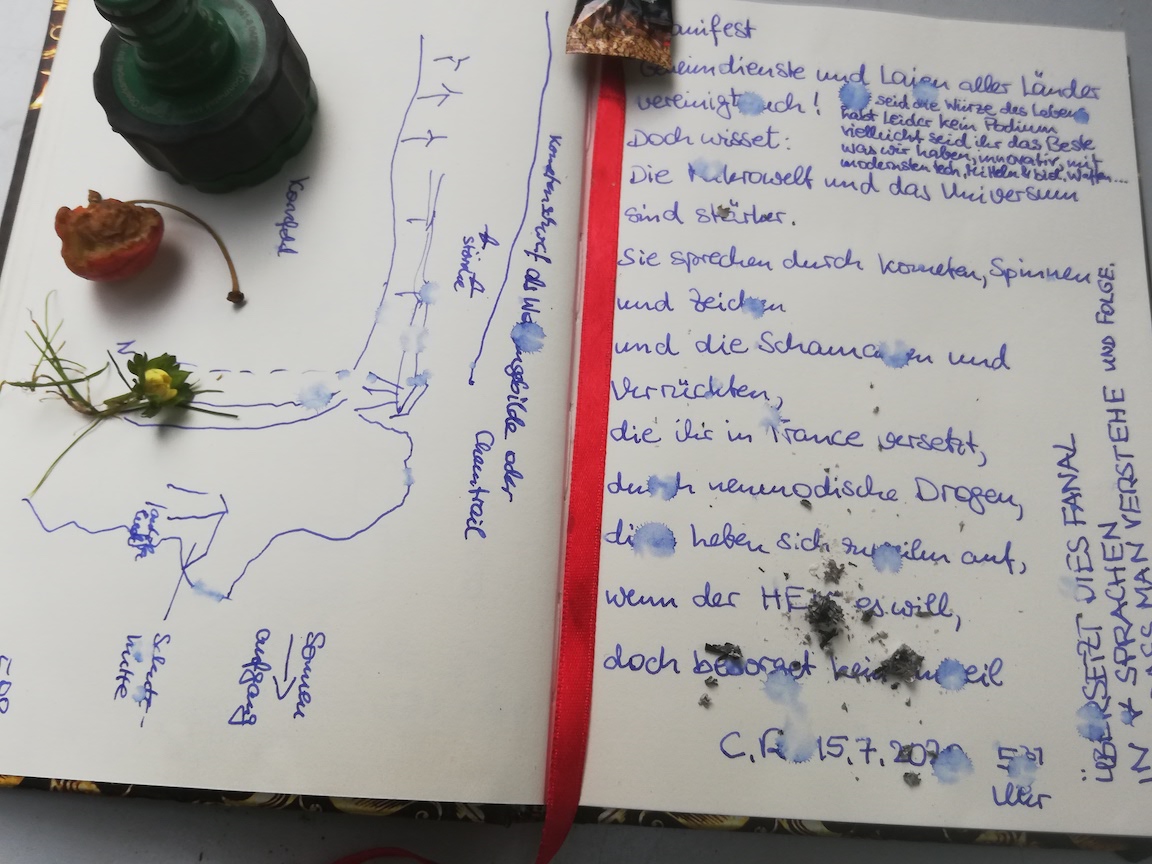 Kornfeld
Kometenschweif als Wo ngsbilde oder
Chemtrail
stürke
N
Schutz-
hütte
Sonnen
aufgang
anifest
Geheimdienste und Laien aller Länder
vereinigt euch!
seid die Würze des Lebens
habt leider kein Podium
vielleicht seid ihr das Beste
was wir haben, innovativ, mit
modernsten tech. Mitteln & biol. Waffen...
Doch wisset:
Die Mikrowelt und das Universum
sind stärker.
Sie sprechen durch Kometen, Spinnen
und Zeichen
und die Schamanen und
Verrückten,
die ihr in Trance versetzt,
durch neumodische Drogen,
die heben sich zuweilen auf,
wenn der HERR es will,
doch besorget kein Unheil
C.F. 15.7.2020 5
Uhr
ÜBERSETZT DIES FANAL
IN ∀ SPRACHEN
DASS MAN VERSTEHE UND FOLGE.